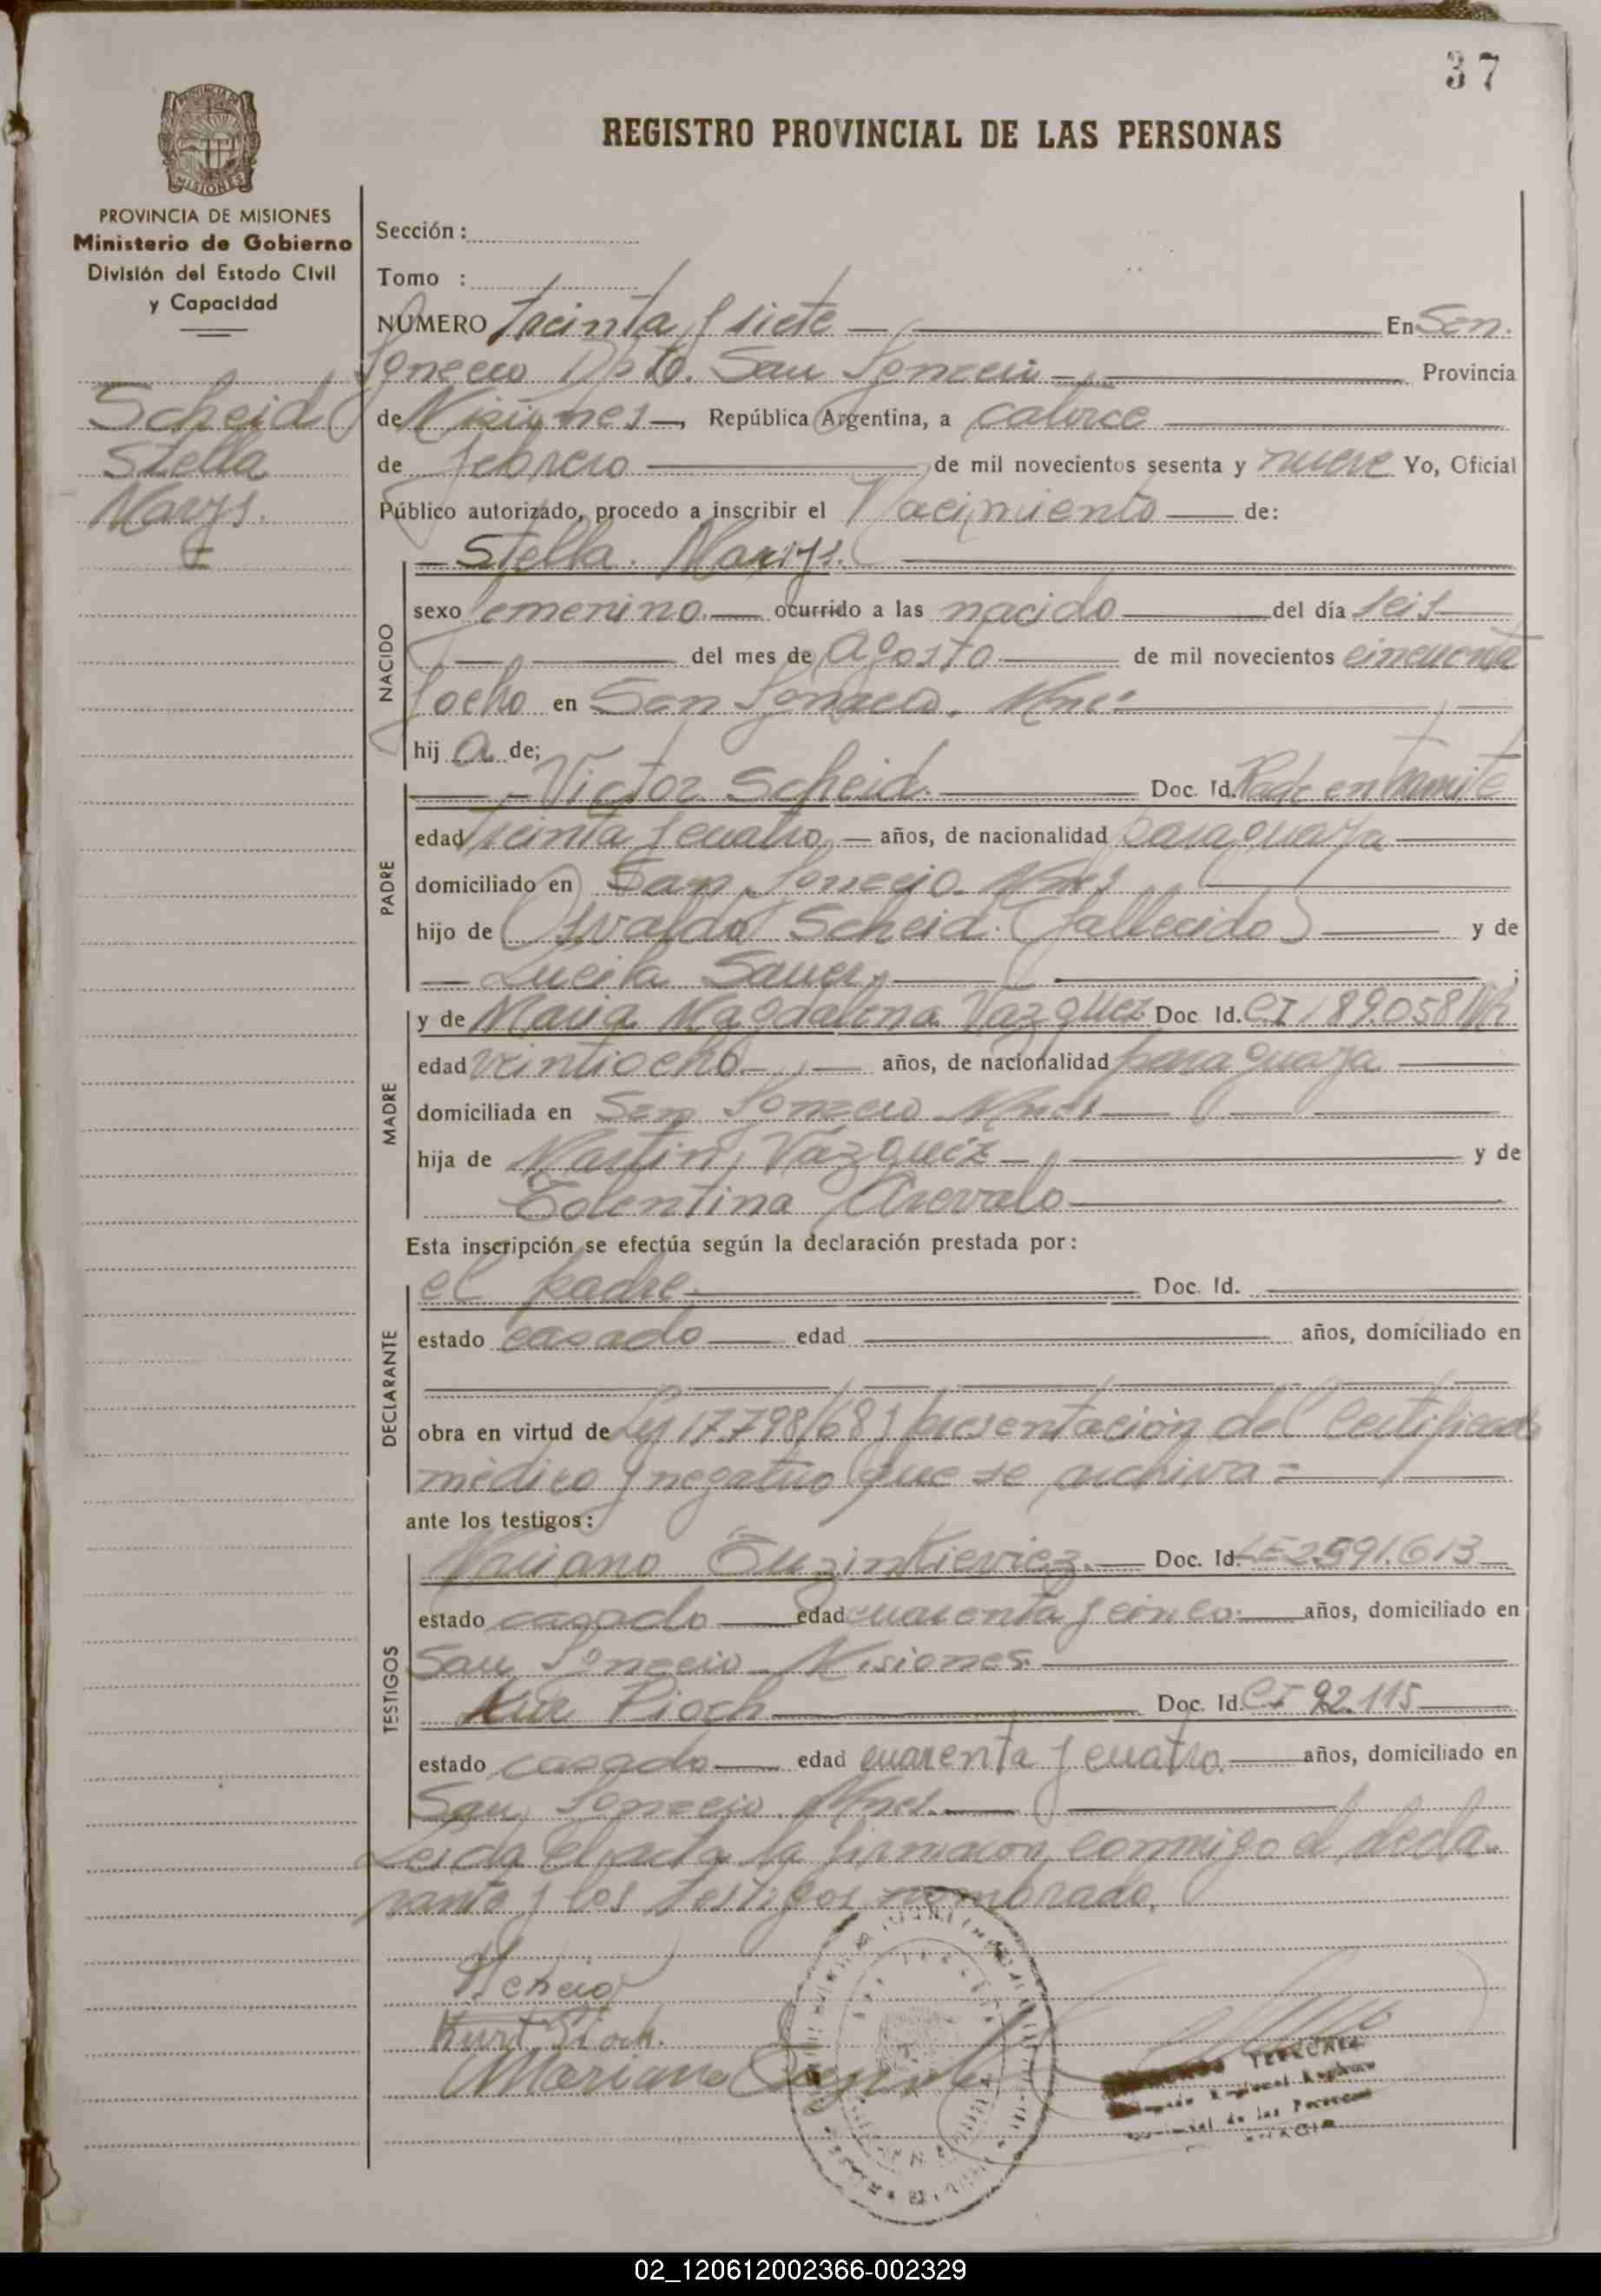 37
REGISTRO PROVINCIAL DE LAS PERSONAS
PROVINCIA DE MISIONES
MISIONES
PROVINCIA DE MISIONES
Ministerio de Gobierno
División del Estado Civil
y Capacidad
Scheid
Stella
Marys.
Sección:
Tomo :
NUMERO Treinta y siete En San
Ignacio Dpto. San Ignacio Provincia
de Misiones, República Argentina, a catorce
de febrero de mil novecientos sesenta y nueve Yo, Oficial
Público autorizado, procedo a inscribir el Nacimiento de:
NACIDO
Stella Marys.
sexo femenino ocurrido a las nacido del día seis
del mes de Agosto de mil novecientos cincuenta
y ocho en San Ignacio, Mnes
hij a de;
PADRE
Victor Scheid. Doc. Id. en tramite
edad treinta y cuatro años, de nacionalidad paraguaya
domiciliado en San Ignacio Mnes
hijo de Osvaldo Scheid (fallecido) y de
Lucila Sauer ;
MADRE
y de Maria Magdalena Vazquez Doc Id. CI 189.058
edad veintiocho años, de nacionalidad paraguaya
domiciliada en San Ignacio Mnes
hija de Martin Vazquez y de
Tolentina Arevalo
Esta inscripción se efectúa según la declaración prestada por:
DECLARANTE
el padre Doc. Id.
estado casado edad años, domiciliado en
obra en virtud de Ley 17.798/68 y presentación del Certificado
médico y negativo que se archiva
ante los testigos:
TESTIGOS
Mariano Doc. Id. LE 2591.613
estado casado edad cuarenta y cinco años, domiciliado en
San Ignacio Misiones
Pioch Doc. Id. CI 92.115
estado casado edad cuarenta y cuatro años, domiciliado en
San Ignacio Mnes.
Leida el acta la firmaron conmigo el decla-
rante y los testigos nombrado,
Scheid
Kurt Pioch.
Mariano
02_120612002366-002329